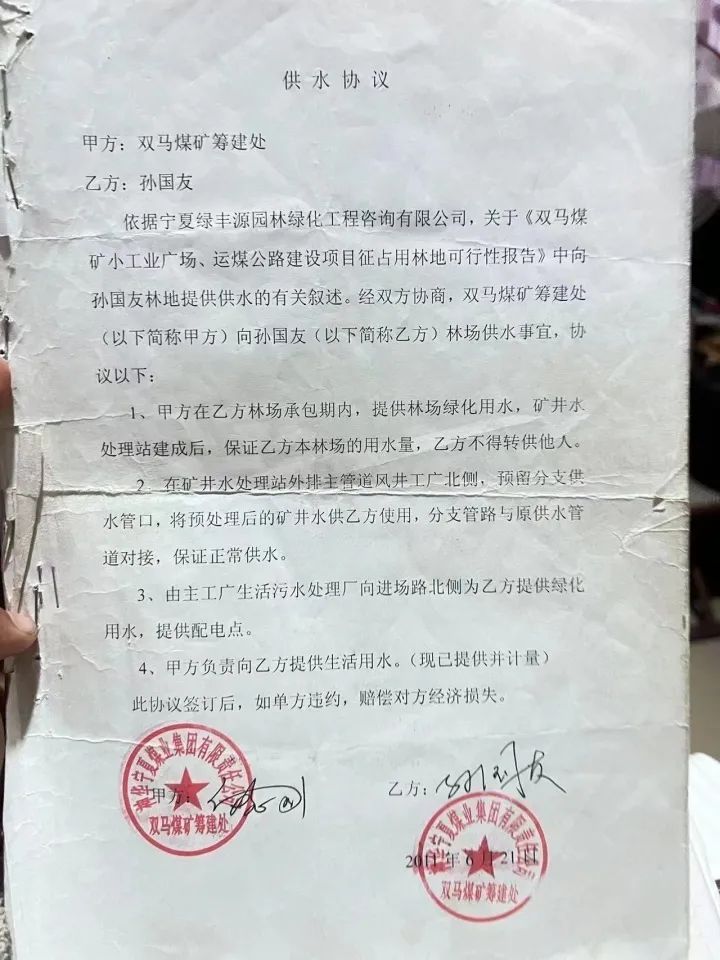 供水协议
甲方：双马煤矿筹建处
乙方：孙国友
依据宁夏绿丰源园林绿化工程咨询有限公司，关于《双马煤
矿小工业广场、运煤公路建设项目征占用林地可行性报告》中向
孙国友林地提供供水的有关叙述。经双方协商，双马煤矿筹建处
（以下简称甲方）向孙国友（以下简称乙方）林场供水事宜，协
议以下：
1、甲方在乙方林场承包期内，提供林场绿化用水，矿井水
处理站建成后，保证乙方本林场的用水量，乙方不得转供他人。
2、在矿井水处理站外排主管道风井工广北侧，预留分支供
水管口，将预处理后的矿井水供乙方使用，分支管路与原供水管
道对接，保证正常供水。
3、由主工广生活污水处理厂向进场路北侧为乙方提供绿化
用水，提供配电点。
4、甲方负责向乙方提供生活用水。（现已提供并计量）
此协议签订后，如单方违约，赔偿对方经济损失。
神华宁夏煤业集团有限责任公司
双马煤矿筹建处
甲方：
乙方：孙国友
神华宁夏煤业集团有限责任公司
2011年6月21日
双马煤矿筹建处